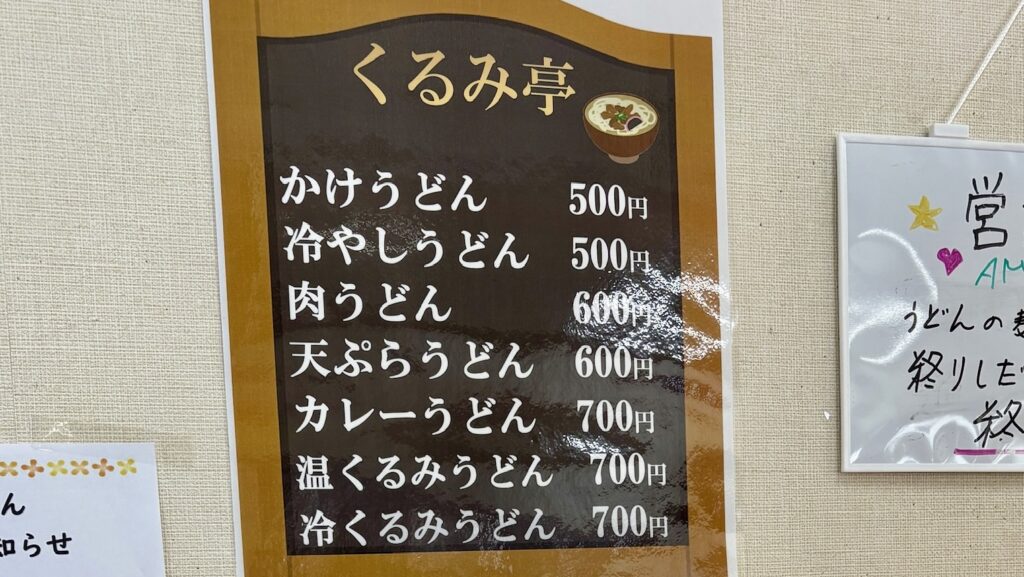 くるみ亭
かけうどん 500円
冷やしうどん 500円
肉うどん 600円
天ぷらうどん 600円
カレーうどん 700円
温くるみうどん 700円
冷くるみうどん 700円
営
AM
うどんの
終りした
終
ん
知らせ